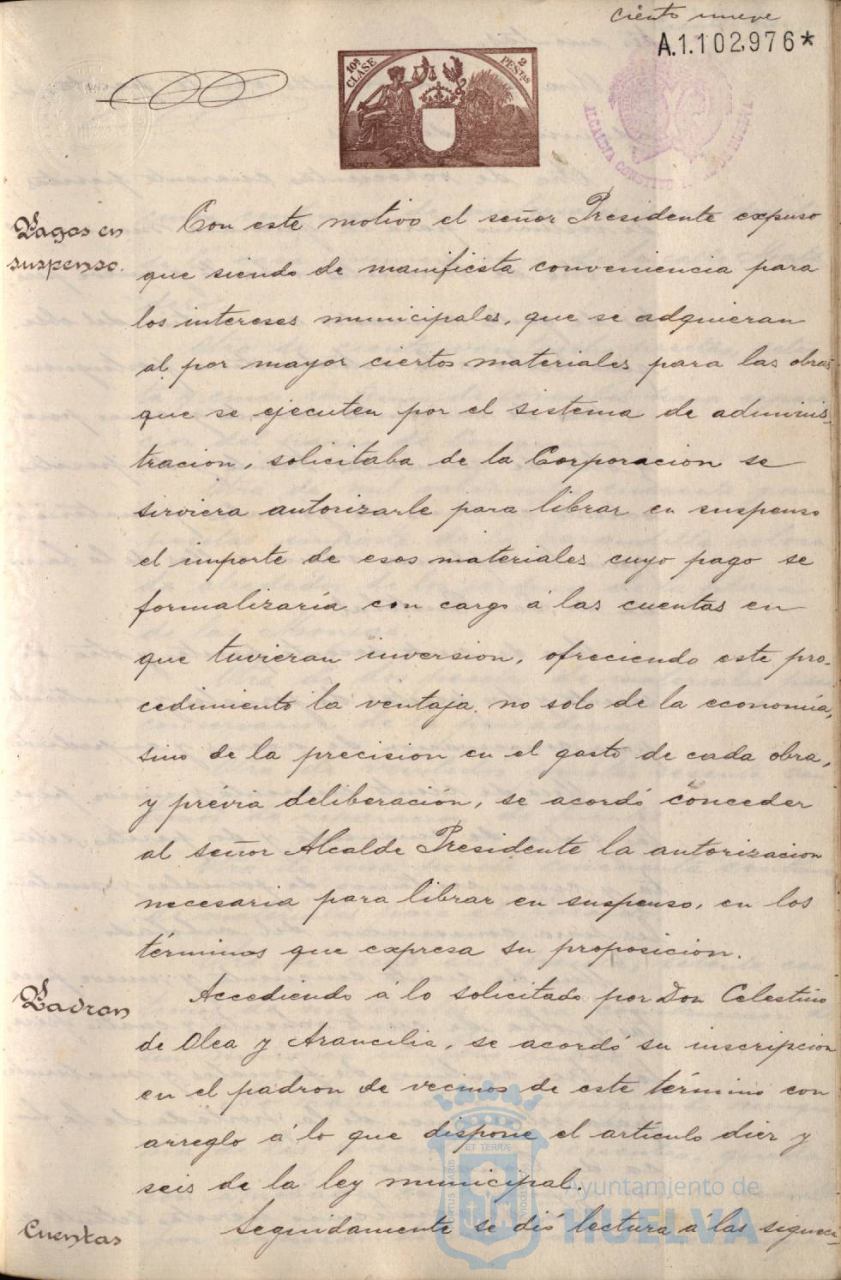 ciento nueve
A.1.102,976*
10ª CLASE
2 PESTAS
ALCALDIA CONSTITU
Pagos en
suspenso.
Con este motivo el señor Presidente expuso
que siendo de manifiesta conveniencia para
los intereses municipales, que se adquieran
al por mayor ciertos materiales para las obras
que se ejecuten por el sistema de adminis-
tracion, solicitaba de la Corporacion se
sirviera autorizarle para librar en suspenso
el importe de esos materiales cuyo pago se
formalizaría con cargo á las cuentas en
que tuvieran inversion, ofreciendo este pro-
cedimiento la ventaja no solo de la economía,
sino de la precision en el gasto de cada obra,
y prévia deliberación, se acordó conceder
al señor Alcalde Presidente la autorizacion
necesaria para librar en suspenso, en los
términos que expresa su proposicion.
Padron
Accediendo á lo solicitado por Don Celestino
de Olea y Arancilia, se acordó su inscripcion
en el padron de vecinos de este término con
arreglo á lo que dispone el artículo diez y
seis de la ley municipal.
Cuentas
Seguidamente se dió lectura á las siguien-
Ayuntamiento de
HUELVA